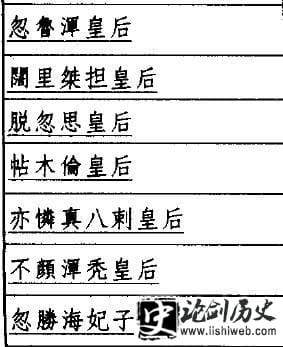 忽魯渾皇后
闊里桀担皇后
脱忽思皇后
帖木倫皇后
亦憐真八剌皇后
不顔渾禿皇后
忽勝海妃子
史
论剑历史
www.lishiweb.com